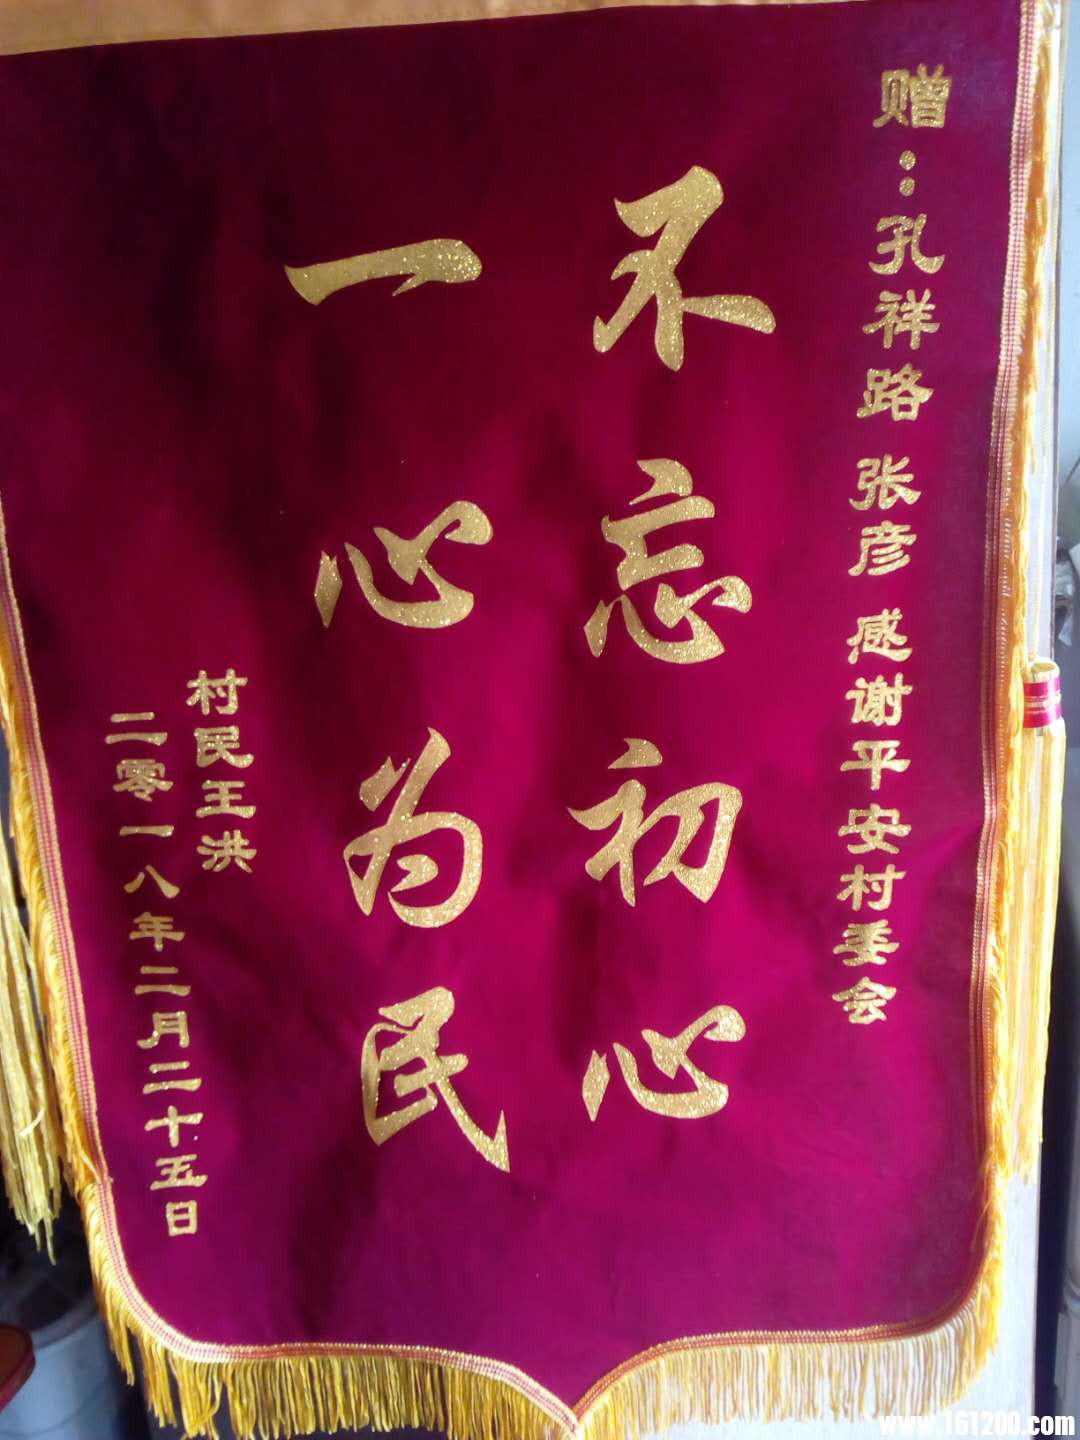 赠：孔祥路 张彦 感谢平安村委会
不忘初心
一心为民
村民王洪
二零一八年二月二十五日
www.161200.com